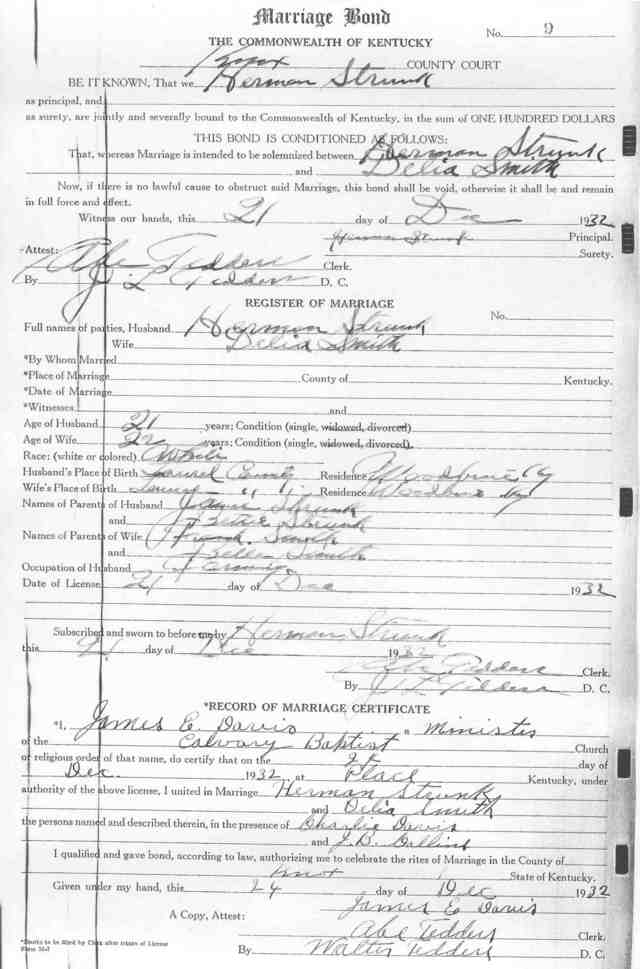 Marriage Bond
No. 9
THE COMMONWEALTH OF KENTUCKY
Knox COUNTY COURT
BE IT KNOWN, That we Herman Strunk
as principal, and
as surety, are jointly and severally bound to the Commonwealth of Kentucky, in the sum of ONE HUNDRED DOLLARS
THIS BOND IS CONDITIONED AS FOLLOWS:
That, whereas Marriage is intended to be solemnized between Herman Strunk
and Delia Smith
Now, if there is no lawful cause to obstruct said Marriage, this bond shall be void, otherwise it shall be and remain
in full force and effect.
Witness our hands, this 21 day of Dec 1932
Herman Strunk Principal.
Surety.
Attest:
Abe Tedders Clerk.
By J L Tedders D. C.
REGISTER OF MARRIAGE
No.
Full names of parties, Husband Herman Strunk
Wife Delia Smith
*By Whom Married
*Place of Marriage County of Kentucky.
*Date of Marriage
*Witnesses and
Age of Husband 21 years; Condition (single, widowed, divorced)
Age of Wife 22 years; Condition (single, widowed, divorced).
Race: (white or colored) White
Husband's Place of Birth Laurel County Residence Woodbine Ky
Wife's Place of Birth Laurel " " Residence Woodbine Ky
Names of Parents of Husband Strunk
and Strunk
Names of Parents of Wife Frank Smith
and Belle Smith
Occupation of Husband Farming
Date of License 21 day of Dec 1932
Subscribed and sworn to before me by Herman Strunk
this 21 day of Dec 1932
Abe Tedders Clerk.
By J L Tedders D. C.
*RECORD OF MARRIAGE CERTIFICATE
*I, James E. Davis a Minister
of the Calvary Baptist Church
of religious order of that name, do certify that on the 24 day of
Dec. 1932, at Place Kentucky, under
authority of the above license, I united in Marriage Herman Strunk
and Delia Smith
the persons named and described therein, in the presence of Charlie Davis
and J.B. Collins
I qualified and gave bond, according to law, authorizing me to celebrate the rites of Marriage in the County of
Knox State of Kentucky.
Given under my hand, this 24 day of Dec 1932
James E Davis
A Copy, Attest: Abe Tedders
By Walter Tedders D. C.
*Blanks to be filled by Clerk after return of License